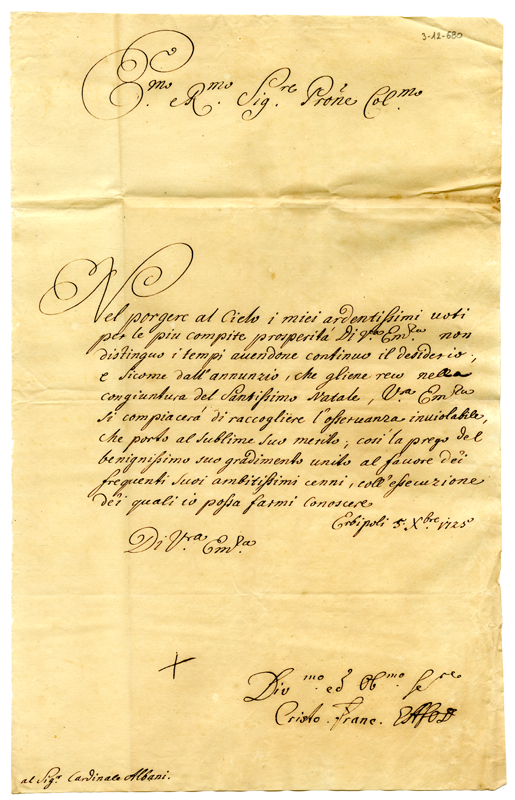 3-12-680
E.mo e R.mo Sig.re Pro͞ne Col.mo
Nel porgere al Cielo i miei ardentissimi uoti
per le piu compite prosperitá Di V.ra Em.za non
distinguo i tempi auendone continuo il desiderio;
e Sicome dall'annunzio, che gliene reco nella
congiuntura del Santissimo Natale, V.ra Em.za
Si compiacerá di raccogliere l'osseruanza inuiolabile,
che porto al Sublime Suo merito; cosi la prego del
benignissimo suo gradimento unito al fauore dei
frequenti Suoi ambitissimi cenni, coll'essecuzione
dei quali io possa farmi conoscere
Erbipoli 5. Xbre. 1725
Di V.ra Em.za
Div.mo ed Ob.mo Se.re
Cristo. Franc.
al Sig.r Cardinale Albani.